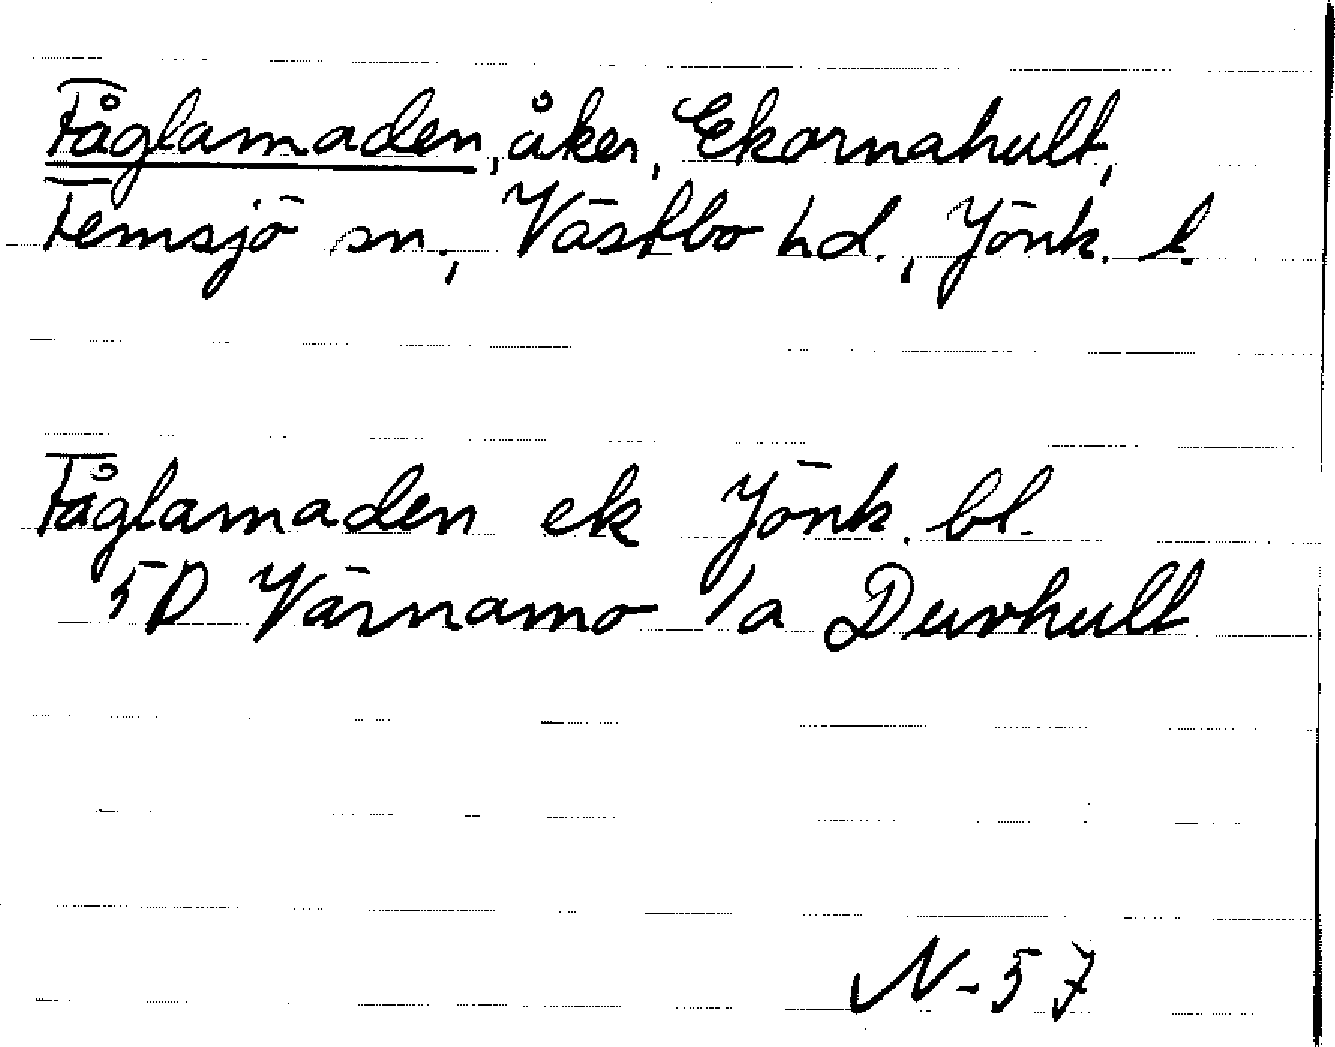 Fåglamaden, åker, Ekornahult,
Femsjö sn., Västbo hd., Jönk. l.
Fåglamaden ek Jönk. bl.
5D Värnamo 1a Duvhult
N-57